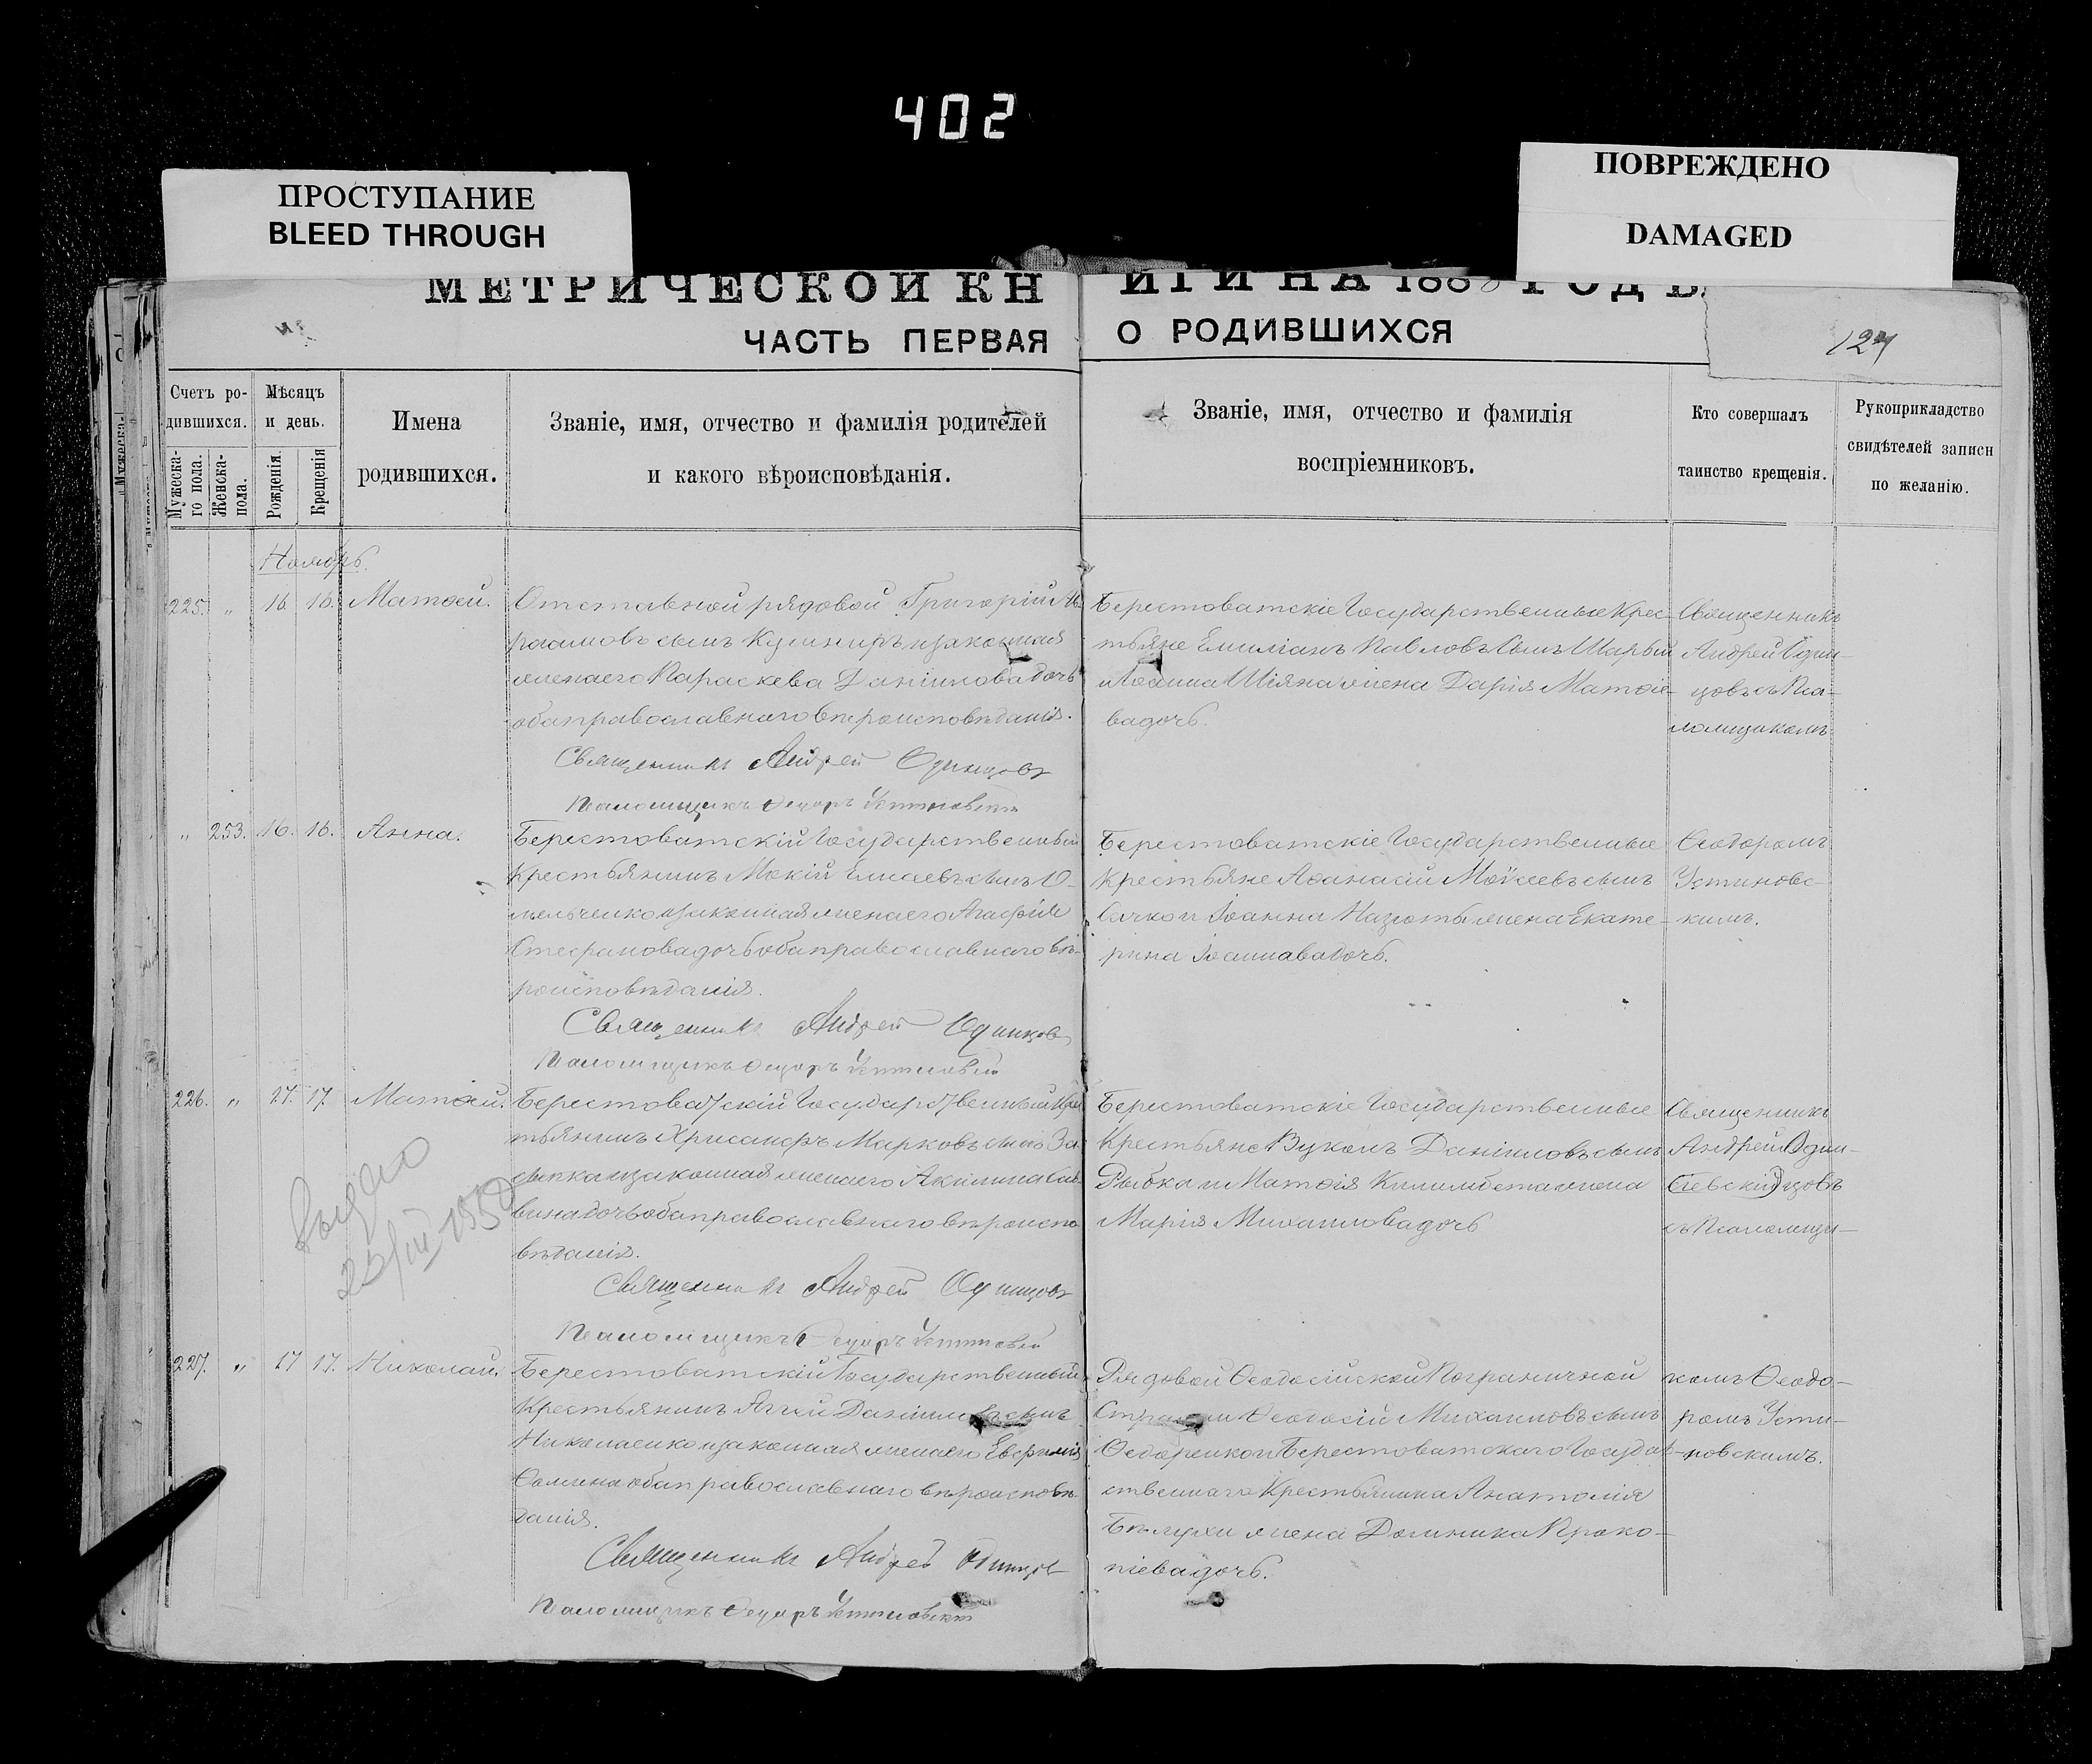 402
ПРОСТУПАНИЕ
BLEED THROUGH
ПОВРЕЖДЕНО
DAMAGED
МЕТРИЧЕСКОЙ КН ИГИ НА 188 ГОДЪ
ЧАСТЬ ПЕРВАЯ О РОДИВШИХСЯ
124
Счетъ ро-
дившихся.
Мужеска-
го пола.
Женска-
пола.
Мѣсяцъ
и день.
Рожденія.
Крещенія
Имена
родившихся.
Званіе, имя, отчество и фамилія родителей
и какого вѣроисповѣданія.
Званіе, имя, отчество и фамилія
воспріемниковъ.
Кто совершалъ
таинство крещенія.
Рукоприкладство
свидѣтелей записи
по желанію.
Ноябрь.
225. „ 16 16. Матѳей.
Отставной рядовой Григорій Ав
раамовъ сынъ Кушниръ и законная
жена его Параскева Даніилова дочь
оба православнаго вѣроисповѣданія.
Священникъ Андрей Одинцовъ
Псаломщикъ Ѳедоръ Устиновскій
Берестоватскіе Государственные Крес-
тьяне Емиліанъ Павловъ сынъ Шарый
и Іоанна Шіяна жена Дарія Матѳіе-
ва дочь.
Священникъ
Андрей Один-
цовъ съ Пса-
ломщикомъ
„ 253. 16. 16. Анна.
Берестоватскій Государственный
Крестьянинъ Мокій Елисеевъ сынъ О-
мельченко и законная жена его Агафія
Стефанова дочь оба православнаго вѣ-
роисповѣданія.
Священникъ Андрей Одинцовъ
Псаломщикъ Ѳедоръ Устиновскій
Берестоватскіе Государственные
Крестьяне Аѳанасій Моѵсеевъ сынъ
Сачко и Іоанна Назюты жена Екате-
рина Іоаннова дочь.
Ѳеодоромъ
Устиновс-
кимъ.
226. „ 17. 17. Матѳей.
Берестоватскій Государственный Крес
тьянинъ Хрисанфъ Марковъ сынъ За
сыпка и законная жена его Акилина Сав
вина дочь оба православнаго вѣроиспо
вѣданія.
Священникъ Андрей Одинцовъ
Псаломщикъ Ѳедоръ Устиновскій
Берестоватскіе Государственные
Крестьяне Вуколъ Даніиловъ сынъ
Рыбка и Матѳія Килимбета жена
Марія Михаилова дочь
Священникъ
Андрей Один-
цовъ
съ Псаломщи-
Выдано
227. „ 17 17. Николай.
Берестоватскій Государственный
Крестьянинъ Аггей Даніиловъ сынъ
Николаенко и законная жена его Евфимія
Ѳомина оба православнаго вѣроисповѣ-
данія.
Священникъ Андрей Одинцовъ
Псаломщикъ Ѳедоръ Устиновскій
Рядовой Ѳеодосійской Пограничной
Стражи Ѳеодосій Михаиловъ сынъ
Ѳедоренко и Берестоватскаго Государ-
ственнаго Крестьянина Анатолія
Бѣлухи жена Домника Проко-
піева дочь.
комъ Ѳеодо-
ромъ Усти-
новскимъ.